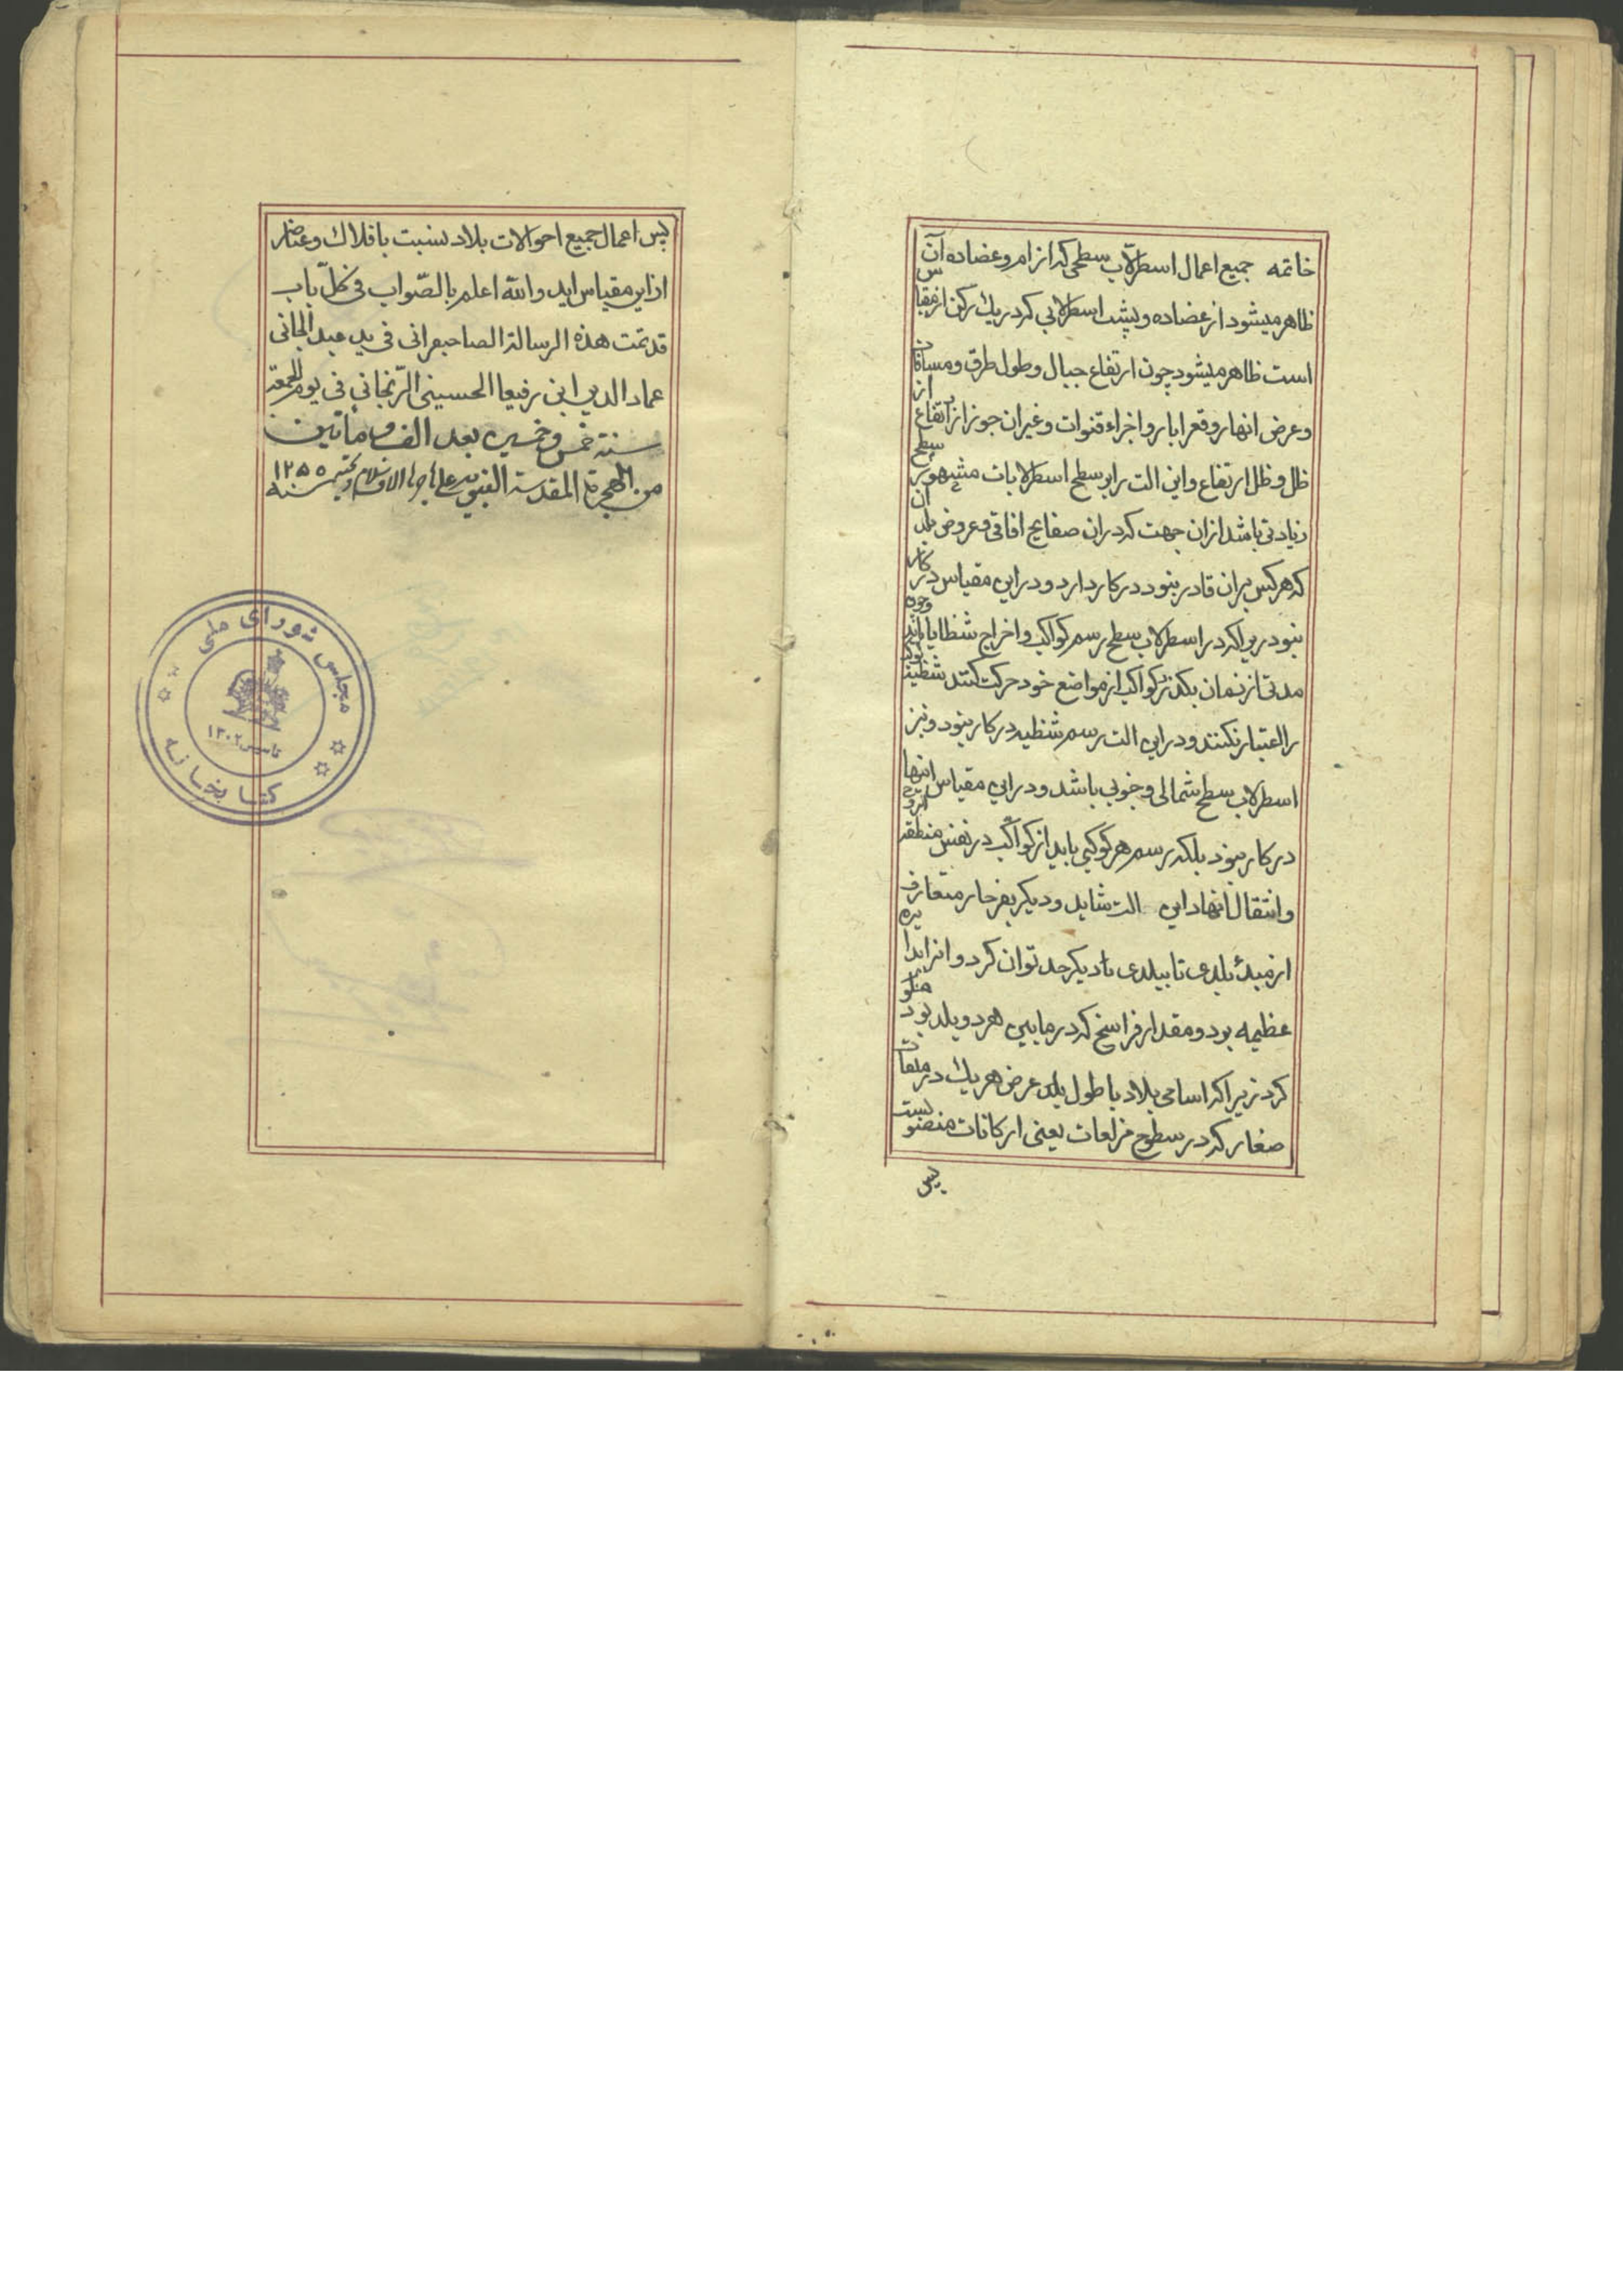 خاتمه جمیع اعمال اسطرلاب سطحی که از ام و عضاده آن
ظاهر میشود از عضاده و پشت اسطرلابی که در یك رکن از مقیاس
است ظاهر میشود چون ارتفاع جبال و طول طرق و مسافات
و عرض انهار و قعر ابار و اجراء قنوات و غیران جوز از ارتفاع از
ظل و ظل ارتفاع و این الت را بر سطح اسطرلابات مشهور سطح
زیادتی باشد ازان جهت که دران صفایح افاقی و عروض بلدان
که هرکس بران قادر نبود در کار دارد و در این مقیاس در کار
نبود دیراکه در اسطرلاب سطح رسم کواکب و اخراج شظایا باید وچون
مدتی از زمان بکذرد کواکب از مواضع خود حرکت کنند شظیه
را اعتبار نکنند و دراین الت رسم شظیه در کار نبود و نیز
اسطرلاب سطح شمالی و جنوبی باشد و دراین مقیاس انها
در کار نبود بلکه رسم هر کوکبی باید از کواکب در نفس منطقه
و انتقال انها دراین الت شاید و دیکر بفرجار متعارف
از مبدٔ بلدی تا ببلدی تا دیکر حد توان کرد و انرا دایره
عظیمه بود و مقدار فراسخ که در مابین هر دو بلد بود
کرد زیراکه اسامی بلاد با طول بلد عرض هر یك در مربعات
صغار که در سطوح مزلعات یعنی ارکانات منصوبست
پس
پس اعمال جمیع احوالات بلاد بنسبت بافلاك و عناصر
ازاین مقیاس اید والله اعلم بالصّواب فی کلّ باب
قد تمت هذه الرسالة الصاحبقرانی فی ید عبد الجانی
عماد الدین ابن رفیعا الحسینی الزّنجانی فی یوم الجمعة
سنة خمس و خمسین بعد الف و ماتین
من الهجرة المقدسة النبویه علی هاجرها الاف سلام و تحیة سنه ۱۲۵۵
مجلس شورای ملی
تاسیس ۱۳۰۲
کتابخانه